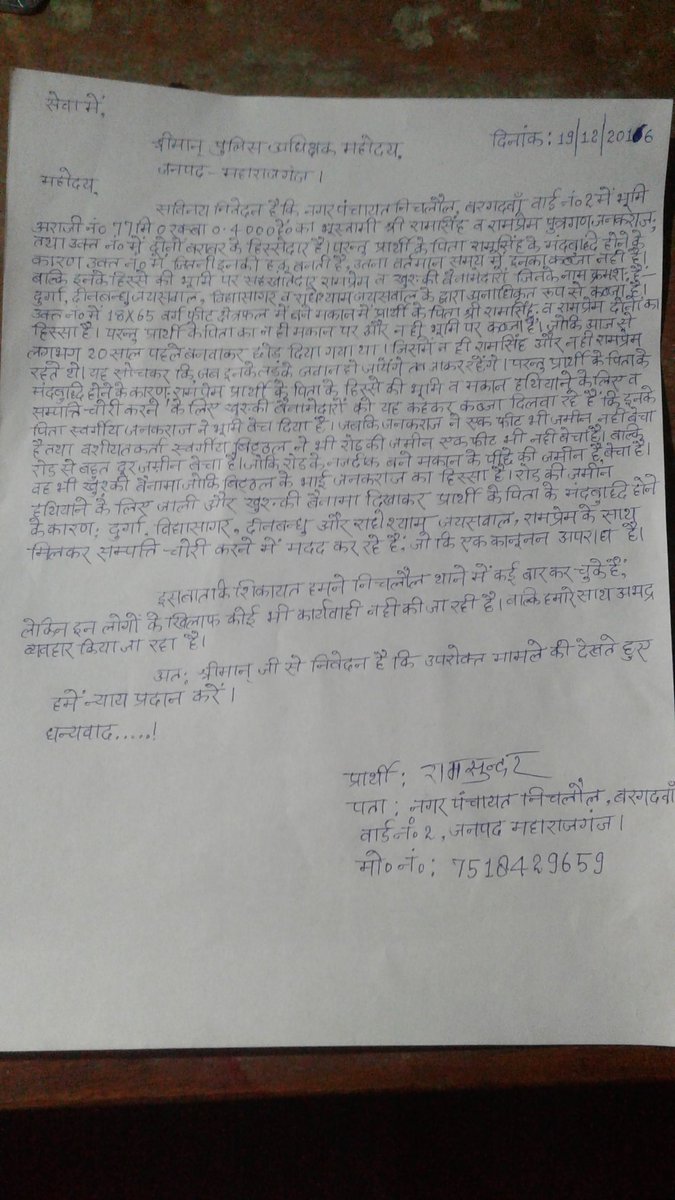 सेवा में,
श्रीमान् पुलिस अधिक्षक महोदय, दिनांक: 19/12/2016
जनपद - महाराजगंज।
महोदय,
सविनय निवेदन है कि नगर पंचायत निचलौल, बरगदवाँ वार्ड नं० 2 में भूमि
अराजी नं० 77 मि० रकबा 0.4000 हे० का भूस्वामी श्री रामसिंह व रामप्रेम पुत्रगण जनकराज,
तथा उक्त नं० में दोनों बराबर के हिस्सेदार है। परन्तु प्रार्थी के पिता रामसिंह के मंदबुद्धि होने के
कारण उक्त नं० में जितनी इनकी हक बनती है, उतना वर्तमान समय में इनका कब्जा नहीं है।
बल्कि इनके हिस्से की भूमि पर सहखातेदार रामप्रेम व खुश्की बैनामेदारों जिनके नाम क्रमशः है-
दुर्गा, दीनबन्धु जयसवाल, विद्यासागर व राधेश्याम जयसवाल के द्वारा अनाधिकृत रूप से कब्जा है।
उक्त नं० में 18X65 वर्ग फीट क्षेत्रफल में बने मकान में प्रार्थी के पिता श्री रामसिंह व रामप्रेम दोनों का
हिस्सा है। परन्तु प्रार्थी के पिता का न ही मकान पर और न ही भूमि पर कब्जा है। जोकि आज से
लगभग 20 साल पहले बनवाकर छोड़ दिया गया था। जिसमें न ही रामसिंह और नही रामप्रेम
रहते थे। यह सोचकर कि जब इनके लड़के जवान हो जायेंगे तब आकर रहेंगे। परन्तु प्रार्थी के पिता के
मंदबुद्धि होने के कारण रामप्रेम प्रार्थी के पिता के हिस्से की भूमि व मकान हथियाने के लिए व
सम्पत्ति-चोरी करने के लिए खुश्की बैनामेदारों को यह कहकर कब्जा दिलवा रहे है कि इनके
पिता स्वर्गीय जनकराज ने भूमि बेच दिया है। जबकि जनकराज ने एक फीट भी जमीन नहीं बेचा
है तथा वशीयतकर्ता स्वर्गीय बिट्ठल ने भी रोड की जमीन एक फीट भी नहीं बेचा है। बल्कि
रोड से बहुत दूर जमीन बेचा है। जोकि रोड के नजदीक बने मकान के पीछे की जमीन है बेचा है।
वह भी खुश्की बैनामा जोकि बिट्ठल के भाई जनकराज का हिस्सा है। रोड की जमीन
हथियाने के लिए जाली और खुश्की बैनामा दिखाकर प्रार्थी के पिता के मंदबुद्धि होने
के कारण; दुर्गा, विद्यासागर, दीनबन्धु और राधेश्याम जयसवाल, रामप्रेम के साथ
मिलकर सम्पत्ति-चोरी करने में मदद कर रहे हैं, जो कि एक कानूनन अपराध है।
शिकायत हमने निचलौल थाने में कई बार कर चुके हैं,
लेकिन इन लोगों के खिलाफ कोई भी कार्यवाही नही की जा रही है। बल्कि हमारे साथ अभद्र
व्यवहार किया जा रहा है।
अतः श्रीमान् जी से निवेदन है कि उपरोक्त मामले को देखते हुए
हमें न्याय प्रदान करें।
धन्यवाद.....!
प्रार्थी: रामसुन्दर
पता: नगर पंचायत निचलौल, बरगदवाँ
वार्ड नं० 2, जनपद महाराजगंज।
मो० नं०: 7518429659